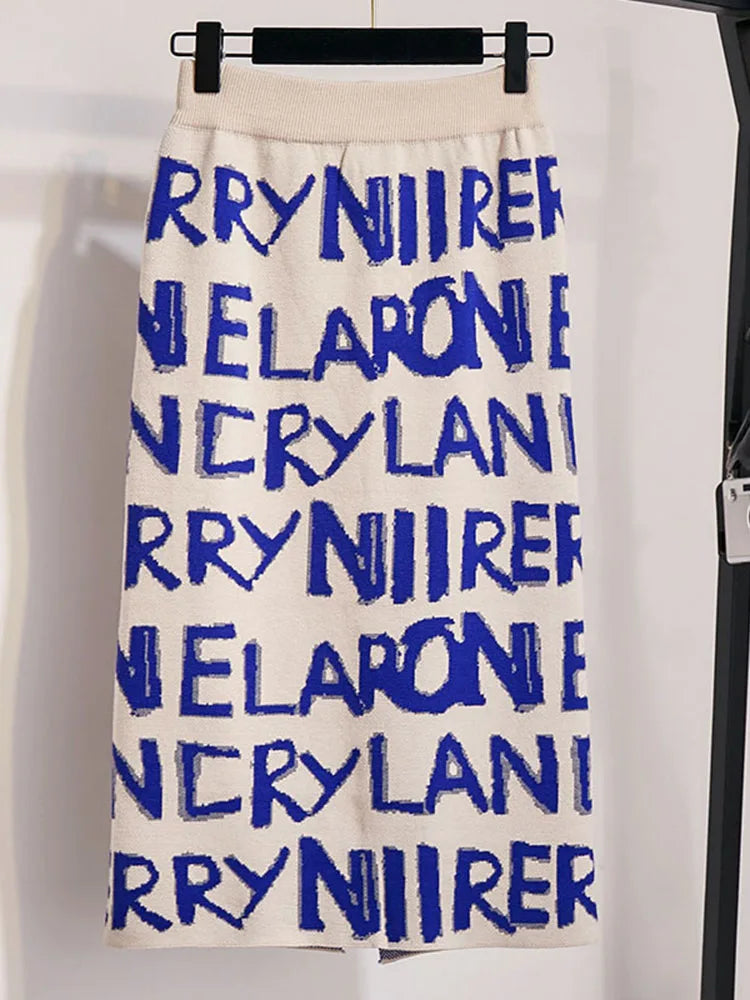 RRY NIIRER
N ELARONI E
N CRY LANI
RRY NIIRER
N ELARONI E
N CRY LANI
RRY NIIRER